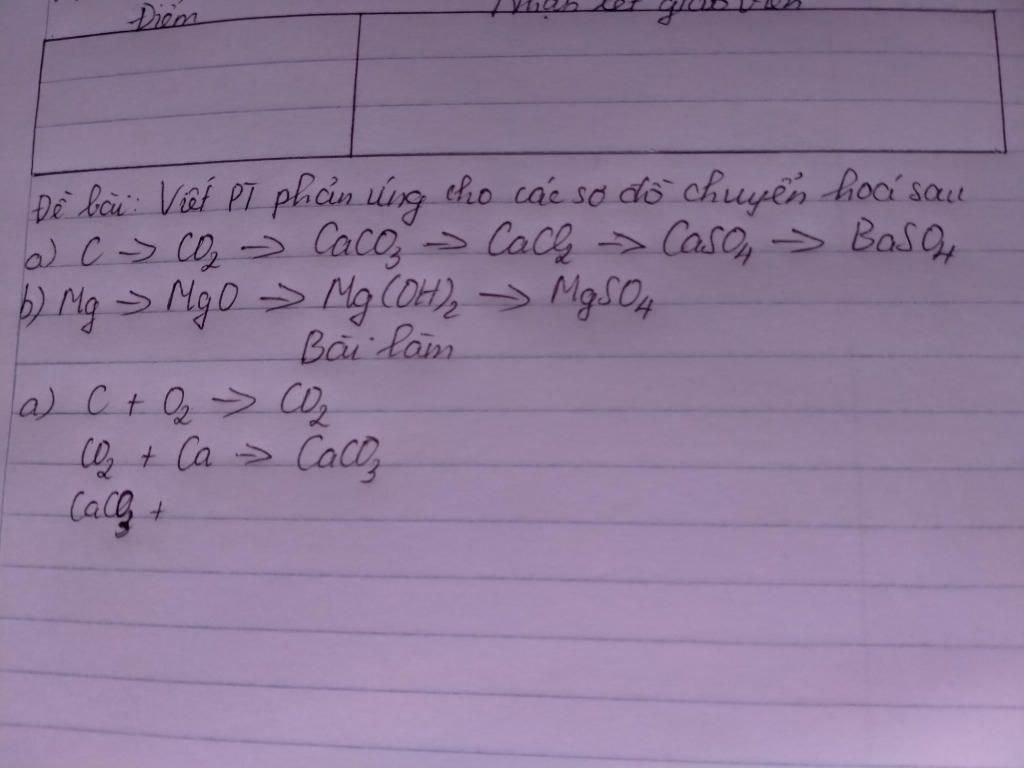 Điểm Nhận xét giáo viên
Đề bài: Viết PT phản ứng cho các sơ đồ chuyển hoá sau
a) C → CO₂ → CaCO₃ → CaCl₂ → CaSO₄ → BaSO₄
b) Mg → MgO → Mg(OH)₂ → MgSO₄
Bài làm
a) C + O₂ → CO₂
CO₂ + Ca → CaCO₃
CaCO₃ +